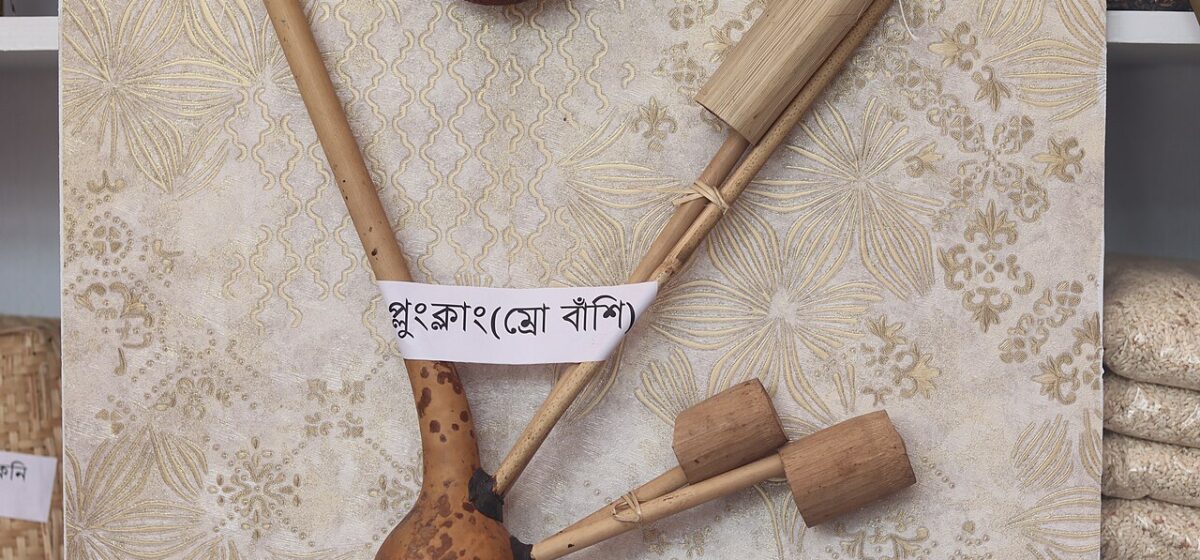 প্লুংক্লাং(ম্রো বাঁশি)